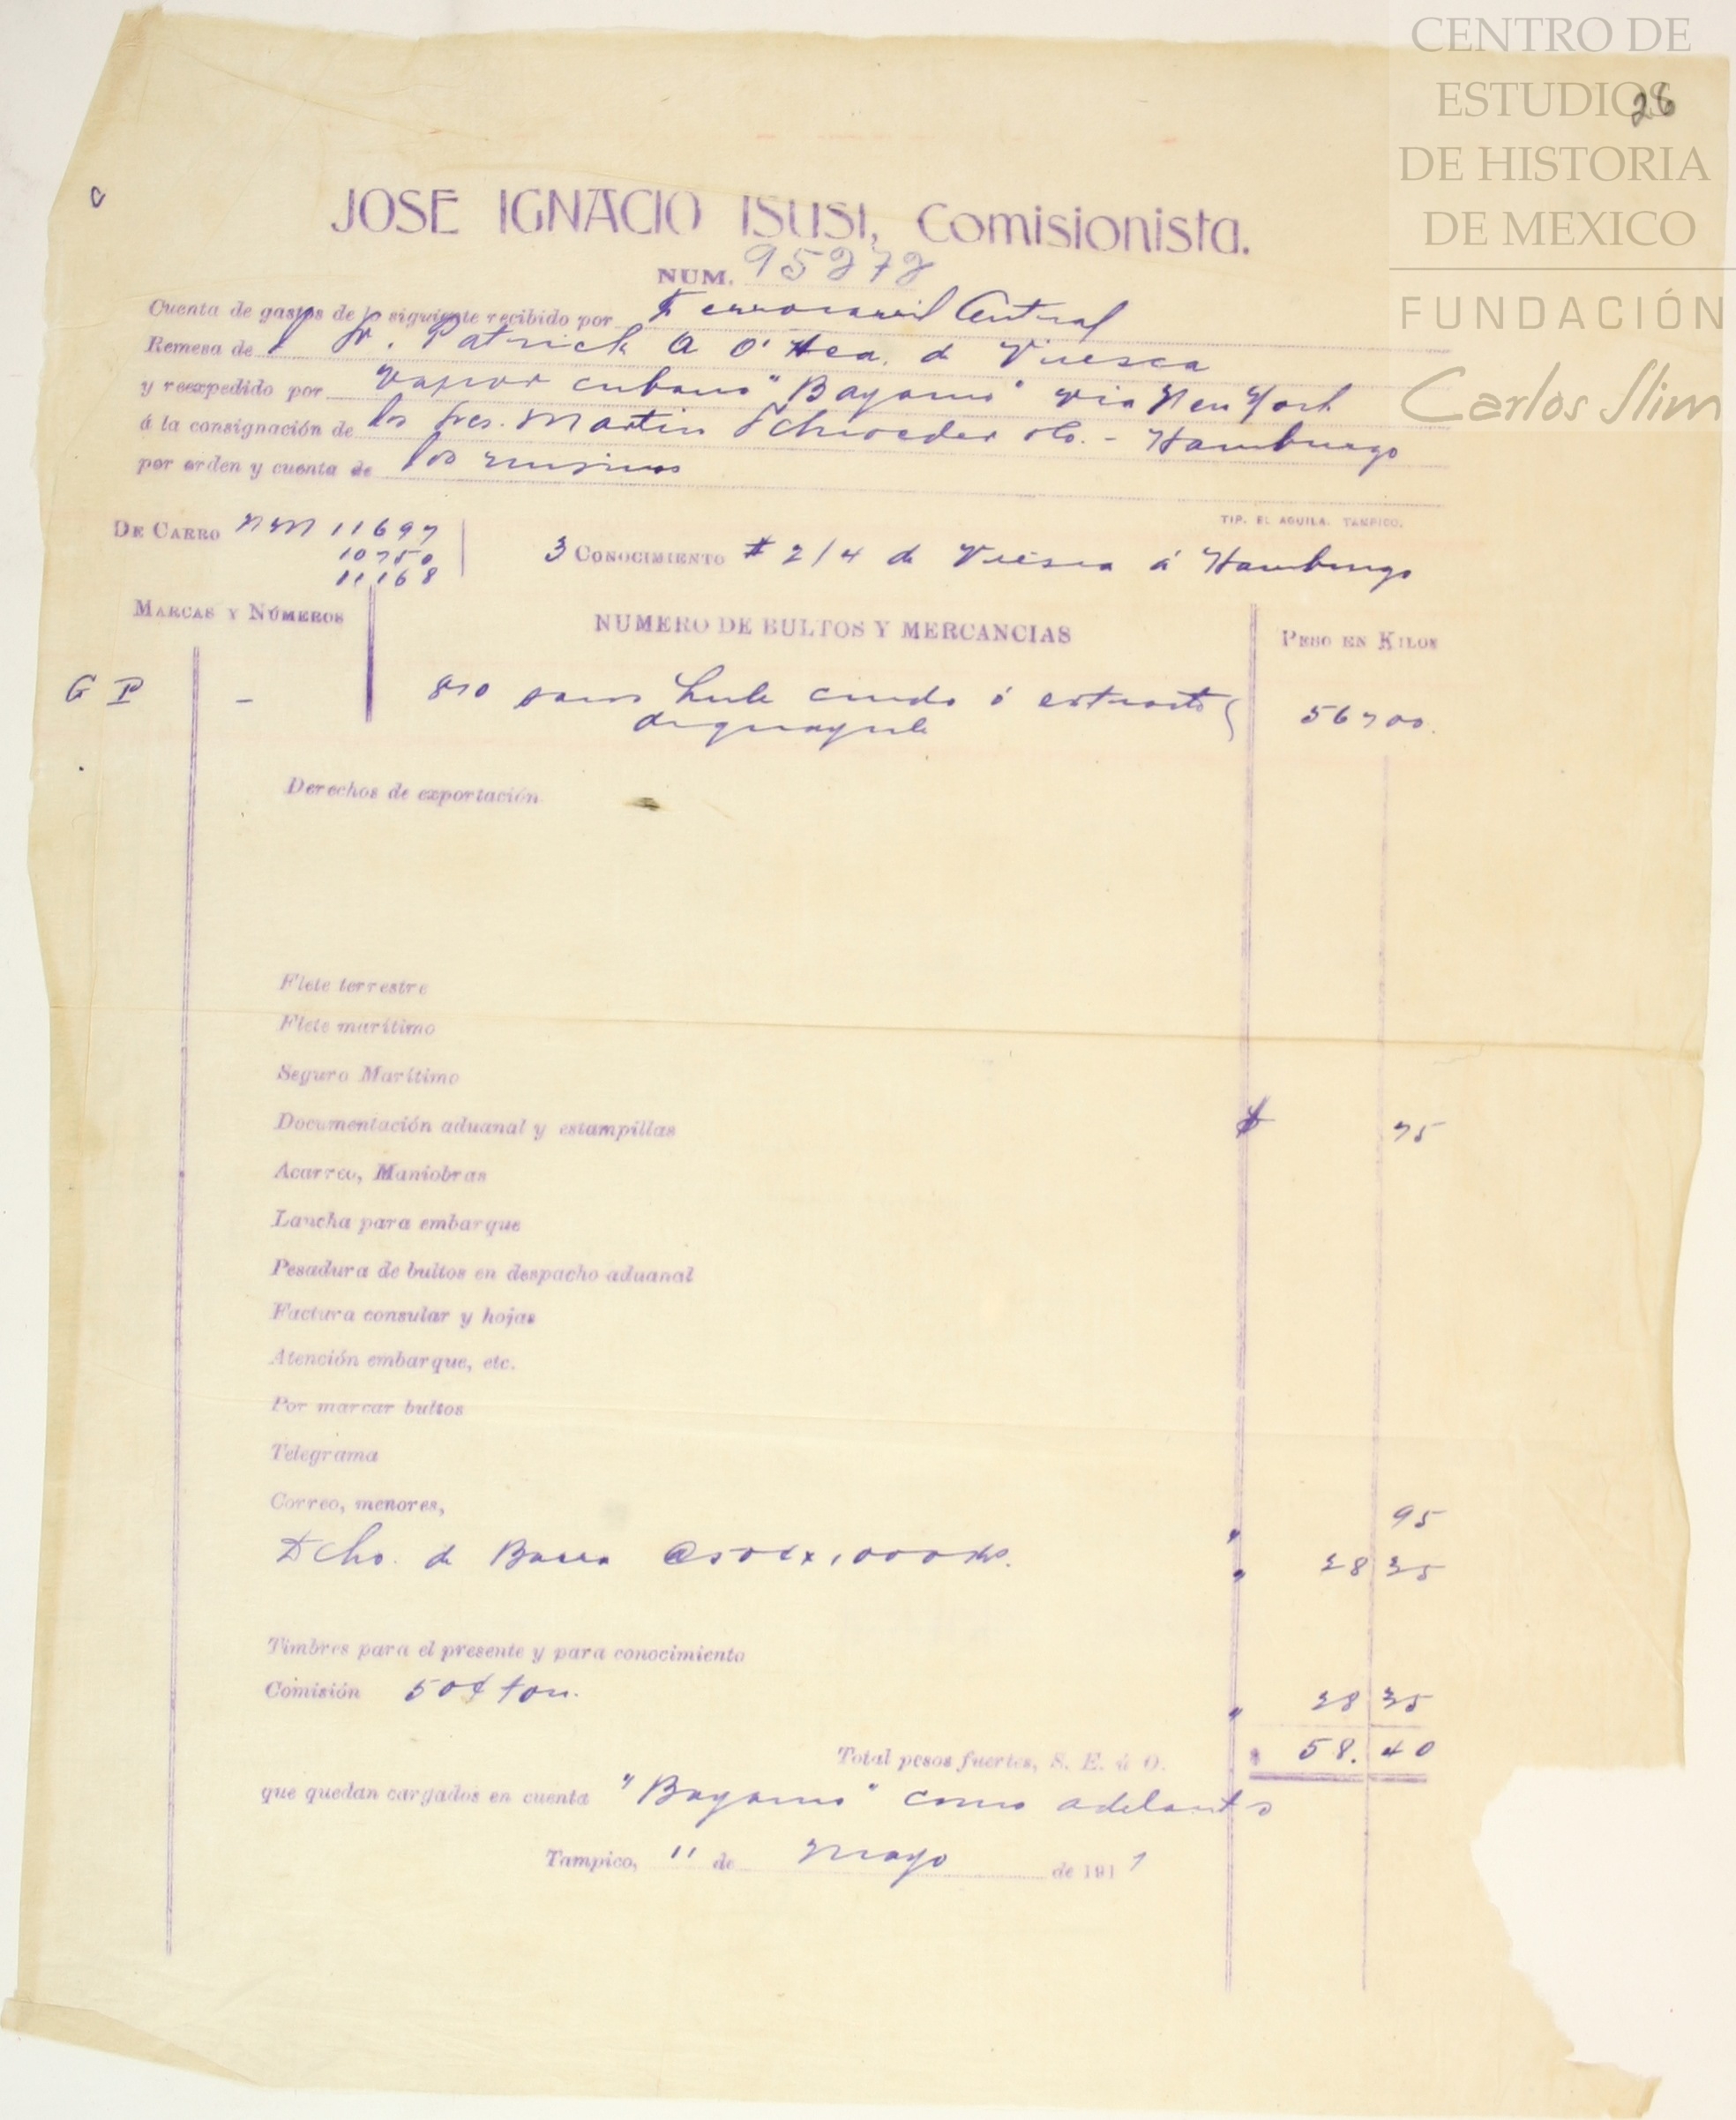 CENTRO DE
ESTUDIOS
DE HISTORIA
DE MEXICO
FUNDACIÓN
Carlos Slim
26
JOSE IGNACIO ISUSI, Comisionista.
NUM. 95272
Cuenta de gastos de lo siguiente recibido por Ferrocarril Central
Remesa de l Sr. Patrick A O'Hea. de Viesca
y reexpedido por vapor cubano "Bayamo" via New York
á la consignación de los Sres. Martin Schroeder Co. - Hamburgo
por orden y cuenta de los mismos
TIP. EL AGUILA. TAMPICO.
DE CARRO NM 11697
10750
11168
3 CONOCIMIENTO # 2/4 de Viesca á Hamburgo
MARCAS Y NÚMEROS
NUMERO DE BULTOS Y MERCANCIAS
PESO EN KILOS
G P - 810 sacos hule crudo ó extracto 56700.
de guayule
Derechos de exportación
Flete terrestre
Flete marítimo
Seguro Marítimo
Documentación aduanal y estampillas $ 75
Acarreo, Maniobras
Lancha para embarque
Pesadura de bultos en despacho aduanal
Factura consular y hojas
Atención embarque, etc.
Por marcar bultos
Telegrama
Correo, menores, " 95
Dcho. de Barra @ 50¢ x 1,000 ks. " 28 35
Timbres para el presente y para conocimiento
Comisión 50¢ ton. " 28 35
Total pesos fuertes, S. E. ú O. $ 58. 40
que quedan cargados en cuenta "Bayamo" como adelanto
Tampico, 11 de Mayo de 1911